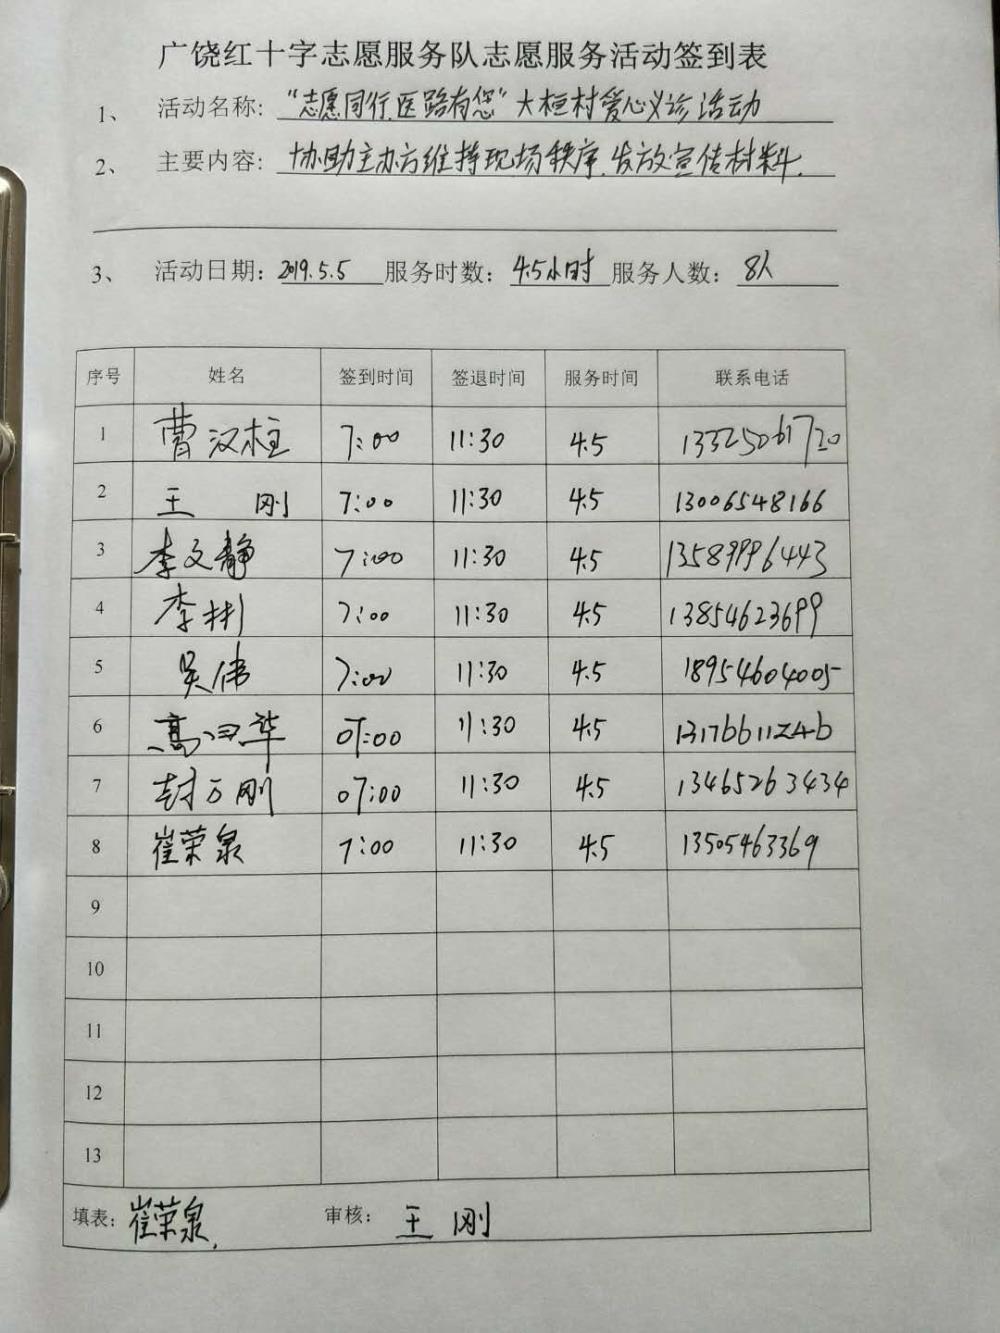 广饶红十字志愿服务队志愿服务活动签到表
1、 活动名称: "志愿同行,医路有您"大桓村爱心义诊活动
2、 主要内容: 协助主办方维持现场秩序、发放宣传材料.
3、 活动日期: 2019.5.5 服务时数: 4.5小时 服务人数: 8人
序号 姓名 签到时间 签退时间 服务时间 联系电话
1 曹汉柱 7:00 11:30 4.5 13325061720
2 王 刚 7:00 11:30 4.5 13006548166
3 李文静 7:00 11:30 4.5 13589996443
4 李彬 7:00 11:30 4.5 13854623699
5 吴伟 7:00 11:30 4.5 18954604005
6 高 华 07:00 11:30 4.5 13176611246
7 封万刚 07:00 11:30 4.5 13465263434
8 崔荣泉 7:00 11:30 4.5 13505463369
9
10
11
12
13
填表: 崔荣泉. 审核: 王 刚